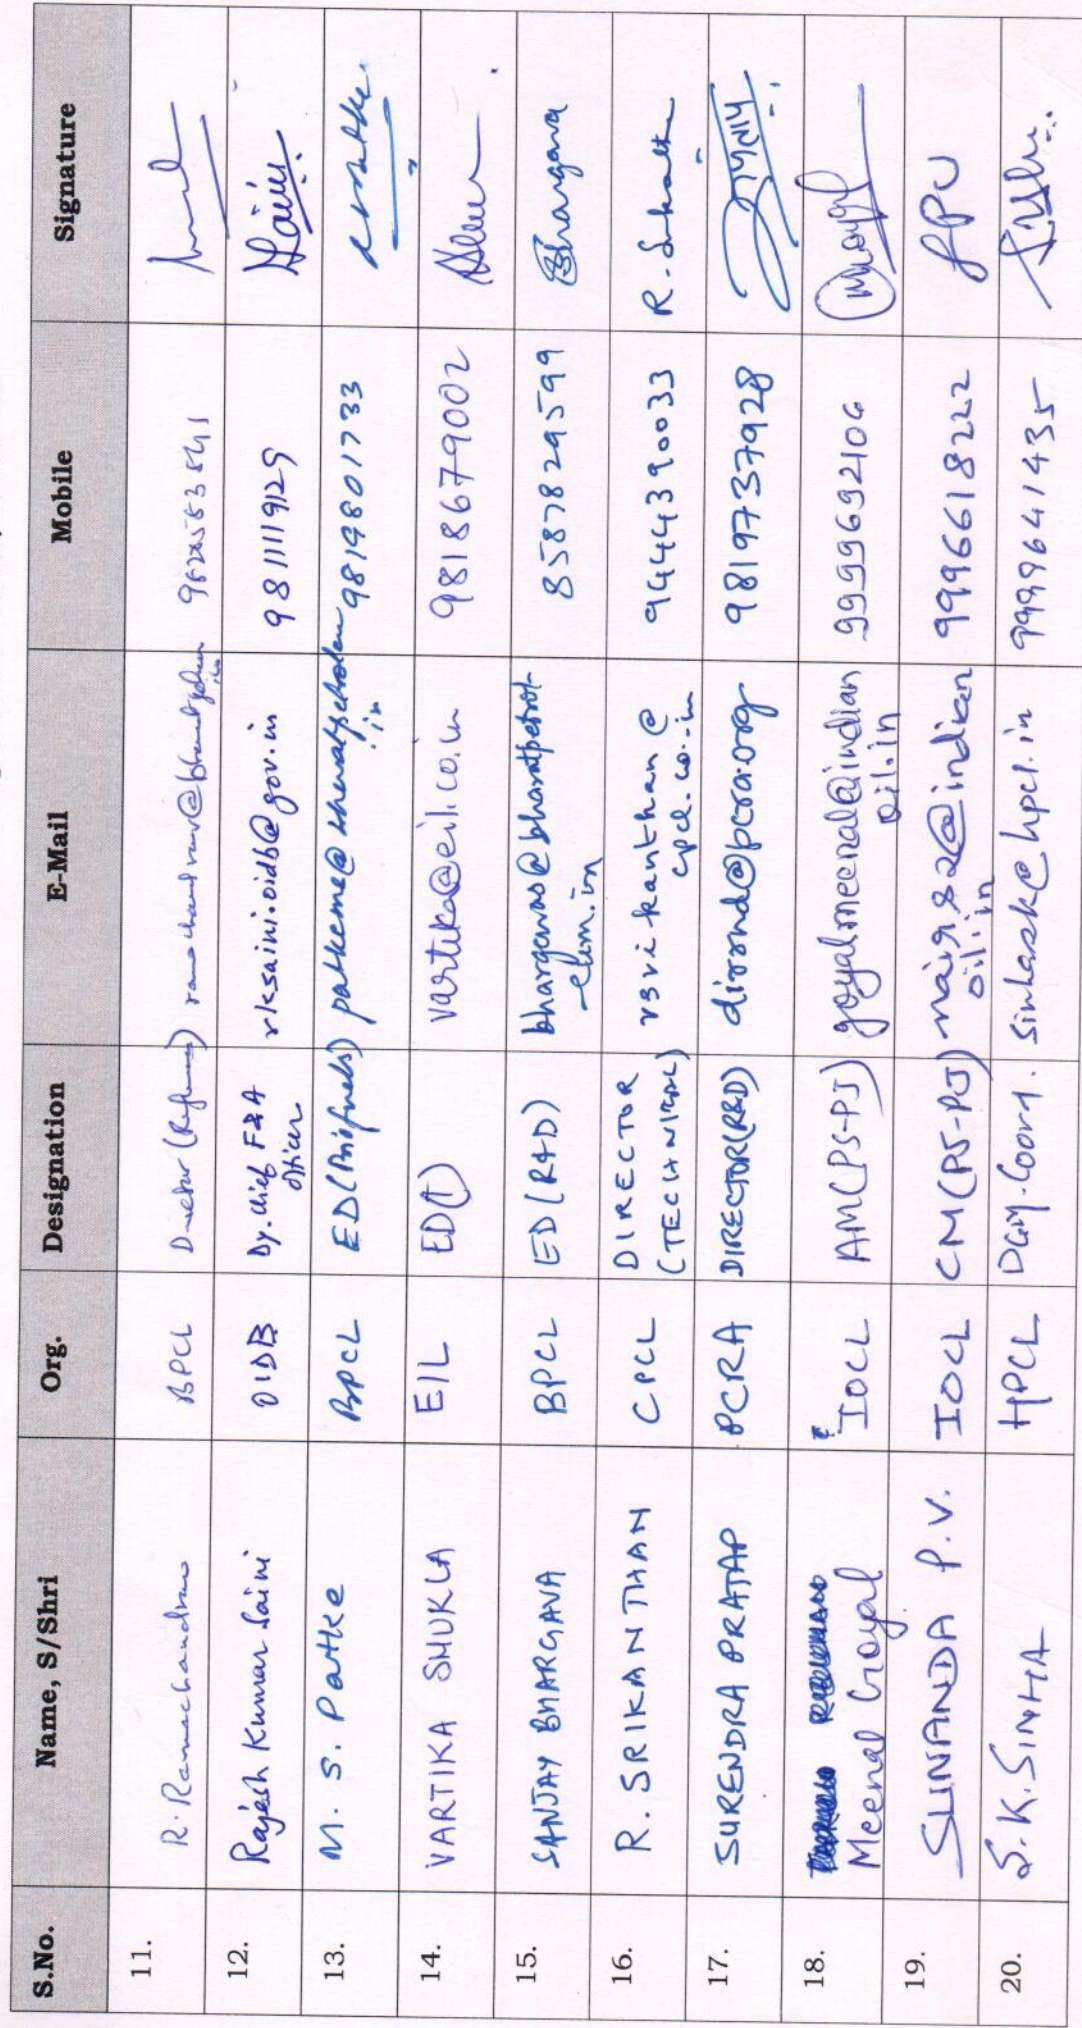 S.No. Name, S/Shri Org. Designation E-Mail Mobile Signature
11. R. Ramachandran BPCL Director (Refineries)
12. Rajesh Kumar Saini OIDB Dy. Chief F&A rksaini.oidb@gov.in 9811119129 Saini
Officer
13. M. S. Patke BPCL ED (Biofuels) patkems@bharatpetroleum 9819801733
.in
14. VARTIKA SHUKLA EIL ED(T) vartika@eil.co.in 9818679002
15. SANJAY BHARGAVA BPCL ED (R+D) bhargavas@bharatpetrol- 8587829599 Bhargava
-eum.in
16. R. SRIKANTHAN CPCL DIRECTOR rsrikanthan@ 9444390033 R. Srikanthan
(TECHNICAL) cpcl.co.in
17. SURENDRA PRATAP PCRA DIRECTOR(R&D) dirrnd@pcra.org 9819737928
18. Meenal Goyal IOCL AM(PS-PJ) goyalmeenal@indian 9999692106
oil.in
19. SUNANDA P.V. IOCL CM(PS-PJ) nairs2@indian 9996618222
oil.in
20. S.K. SINHA HPCL DGM-Coord. sinhask@hpcl.in 9999641435